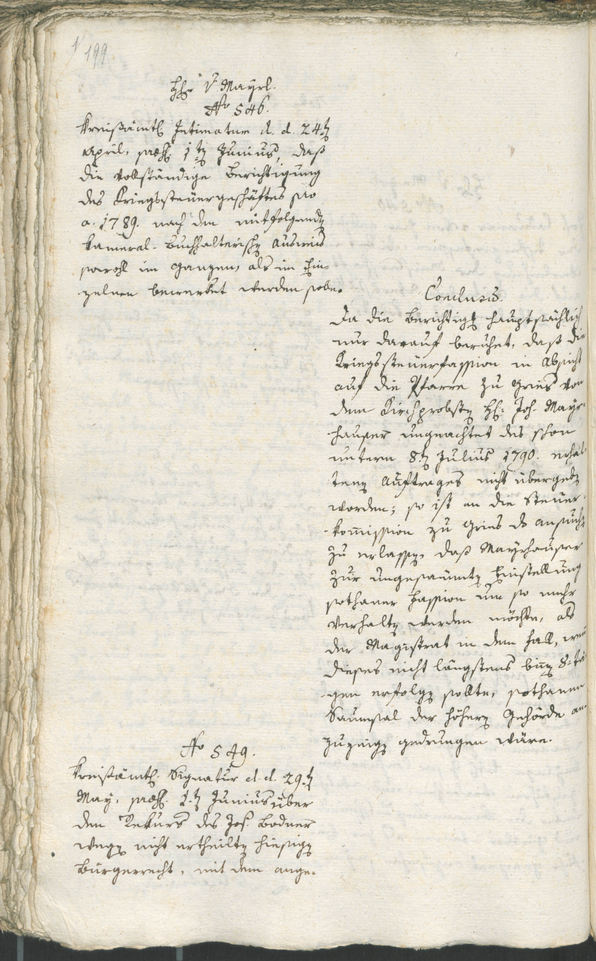 199
Hr. v Mayrl.
No 546.
Kreißämtl Intimatum d. d. 24t
April, praes. 1t Junius, daß
die vollständige Berichtigung
des Kriegssteuergeschäftes pro
a. 1789. nach dem mitfolgendn
Kameral-Buchhalterischn Ausweis
sowohl im ganzen, als im Ein-
zelnen bewerket werden solle.
Conclusum.
Da die Berichtigg hauptsächlich
nur darauf beruhet, daß die
Kriegssteuerfassion in Absicht
auf die Pfarre zu Gries von
dem Kirchprobstn Hr. Joh. Mayr-
hauser ungeachtet des schon
untern 8t Julius 1790. erhal-
tenn Auftrages nicht übergebn
worden; so ist an die Steuer-
kommission zu Gries das Ansuchn
zu erlassn, daß Mayrhauser
zur ungesaumtn Einstellung
sothaner Fassion um so mehr
verhaltn werden möchte, als
der Magistrat in dem Fall, wenn
dieses nicht längstens binn 8. Tä-
gen erfolgn sollte, sothanen
Saumsal der höhern Gehörde an-
zuzeign gedrungen wäre.
No 549.
Kreißämtl. Signatur d d. 29t
May, praes. 2t Junius über
den Rekurs des Jos. Bodner
wegn nicht ertheiltn hiesign
Bürgerrecht, mit dem ange-